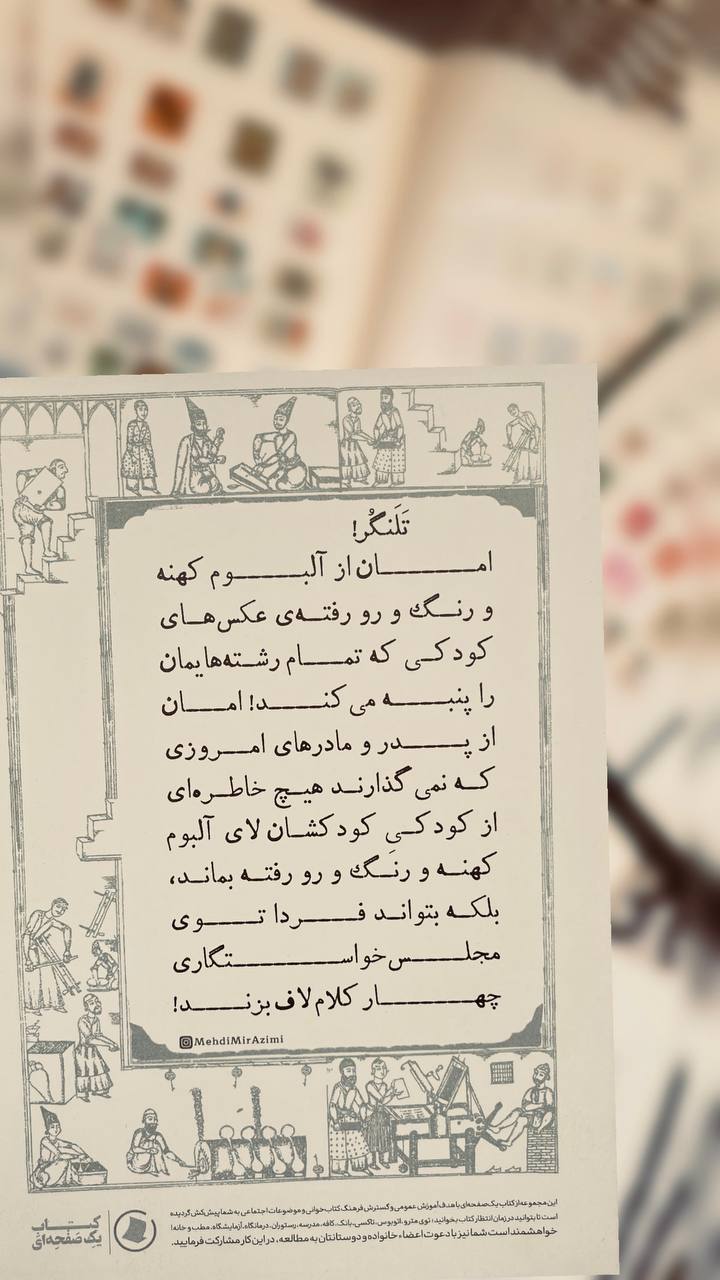 تَلَنگُر!
امـــــان از آلبــــوم کهنه
و رنــگ و رو رفتــه‌ی عکس‌هــای
کودکــی که تمـــام رشــته‌هایمان
را پنبـــه می کنـــد! امـــان
از پـــدر و مادرهای امـــروزی
کــه نمی گذارنــد هیــچ خاطــره‌ای
از کودکــیِ کودکشــان لای آلبوم
کهنــه و رنــگ و رو رفتــه بماند،
بلکــه بتوانــد فـــردا تـــوی
مجلـــس خواســـتگاری
چهـــــار کلام لاف بزنـــد!
MehdiMirAzimi
این مجموعه از کتاب یک صفحه‌ای با هدف آموزش عمومی و گسترش فرهنگ کتاب‌خوانی و موضوعات اجتماعی به شما پیش‌کش گردیده
است تا بتوانید در زمان انتظار کتاب بخوانید؛ توی مترو، اتوبوس، تاکسی، بانک، کافه، مدرسه، رستوران، درمانگاه، آزمایشگاه، مطب و خانه!
خواهشمند است شما نیز با دعوت اعضاء خانواده و دوستانتان به مطالعه، در این کار مشارکت فرمایید.
کتــاب
یک صَفحِه‌ای